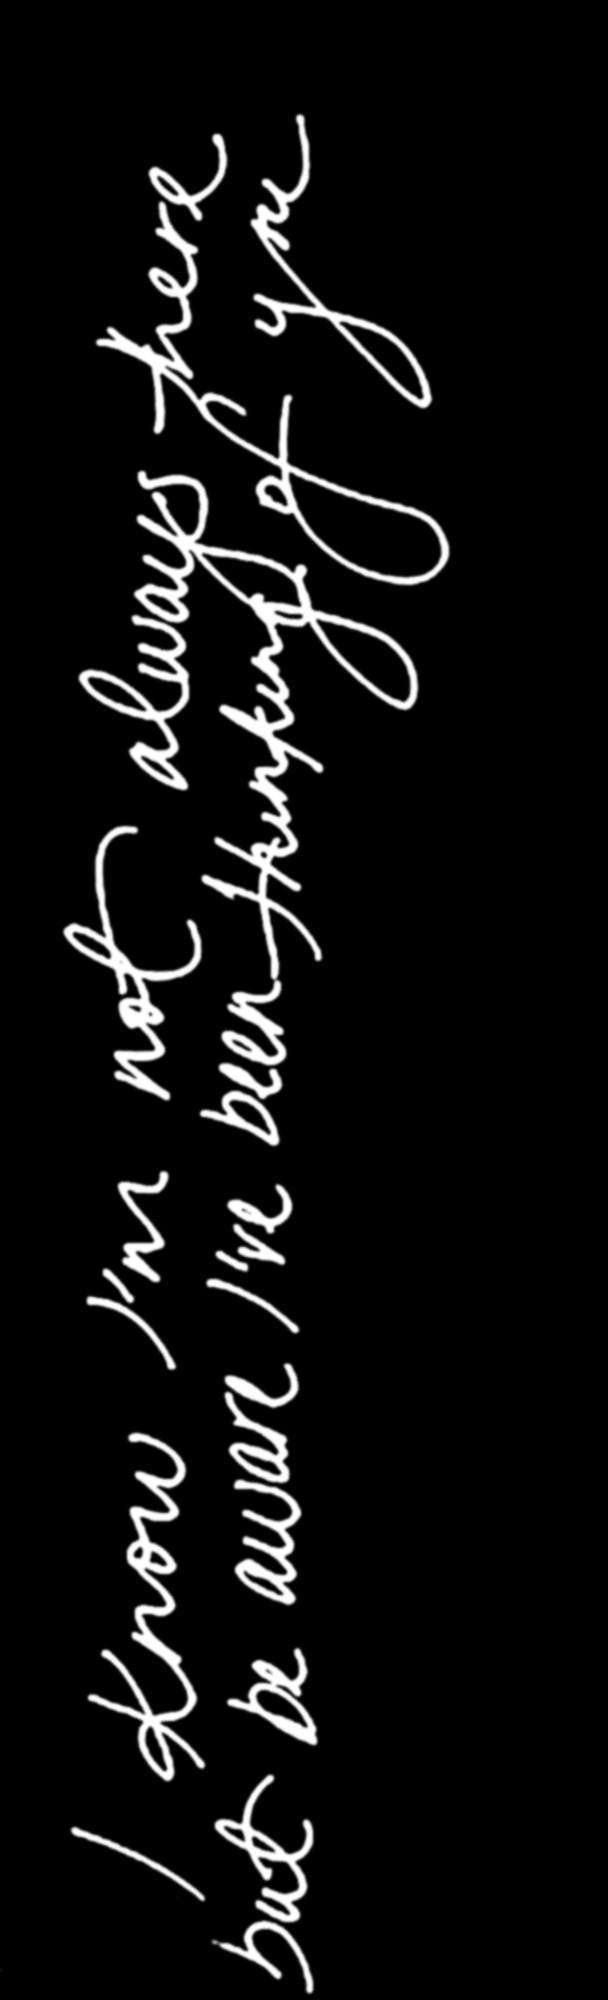 I know I'm not always there
but be aware I've been thinking of you